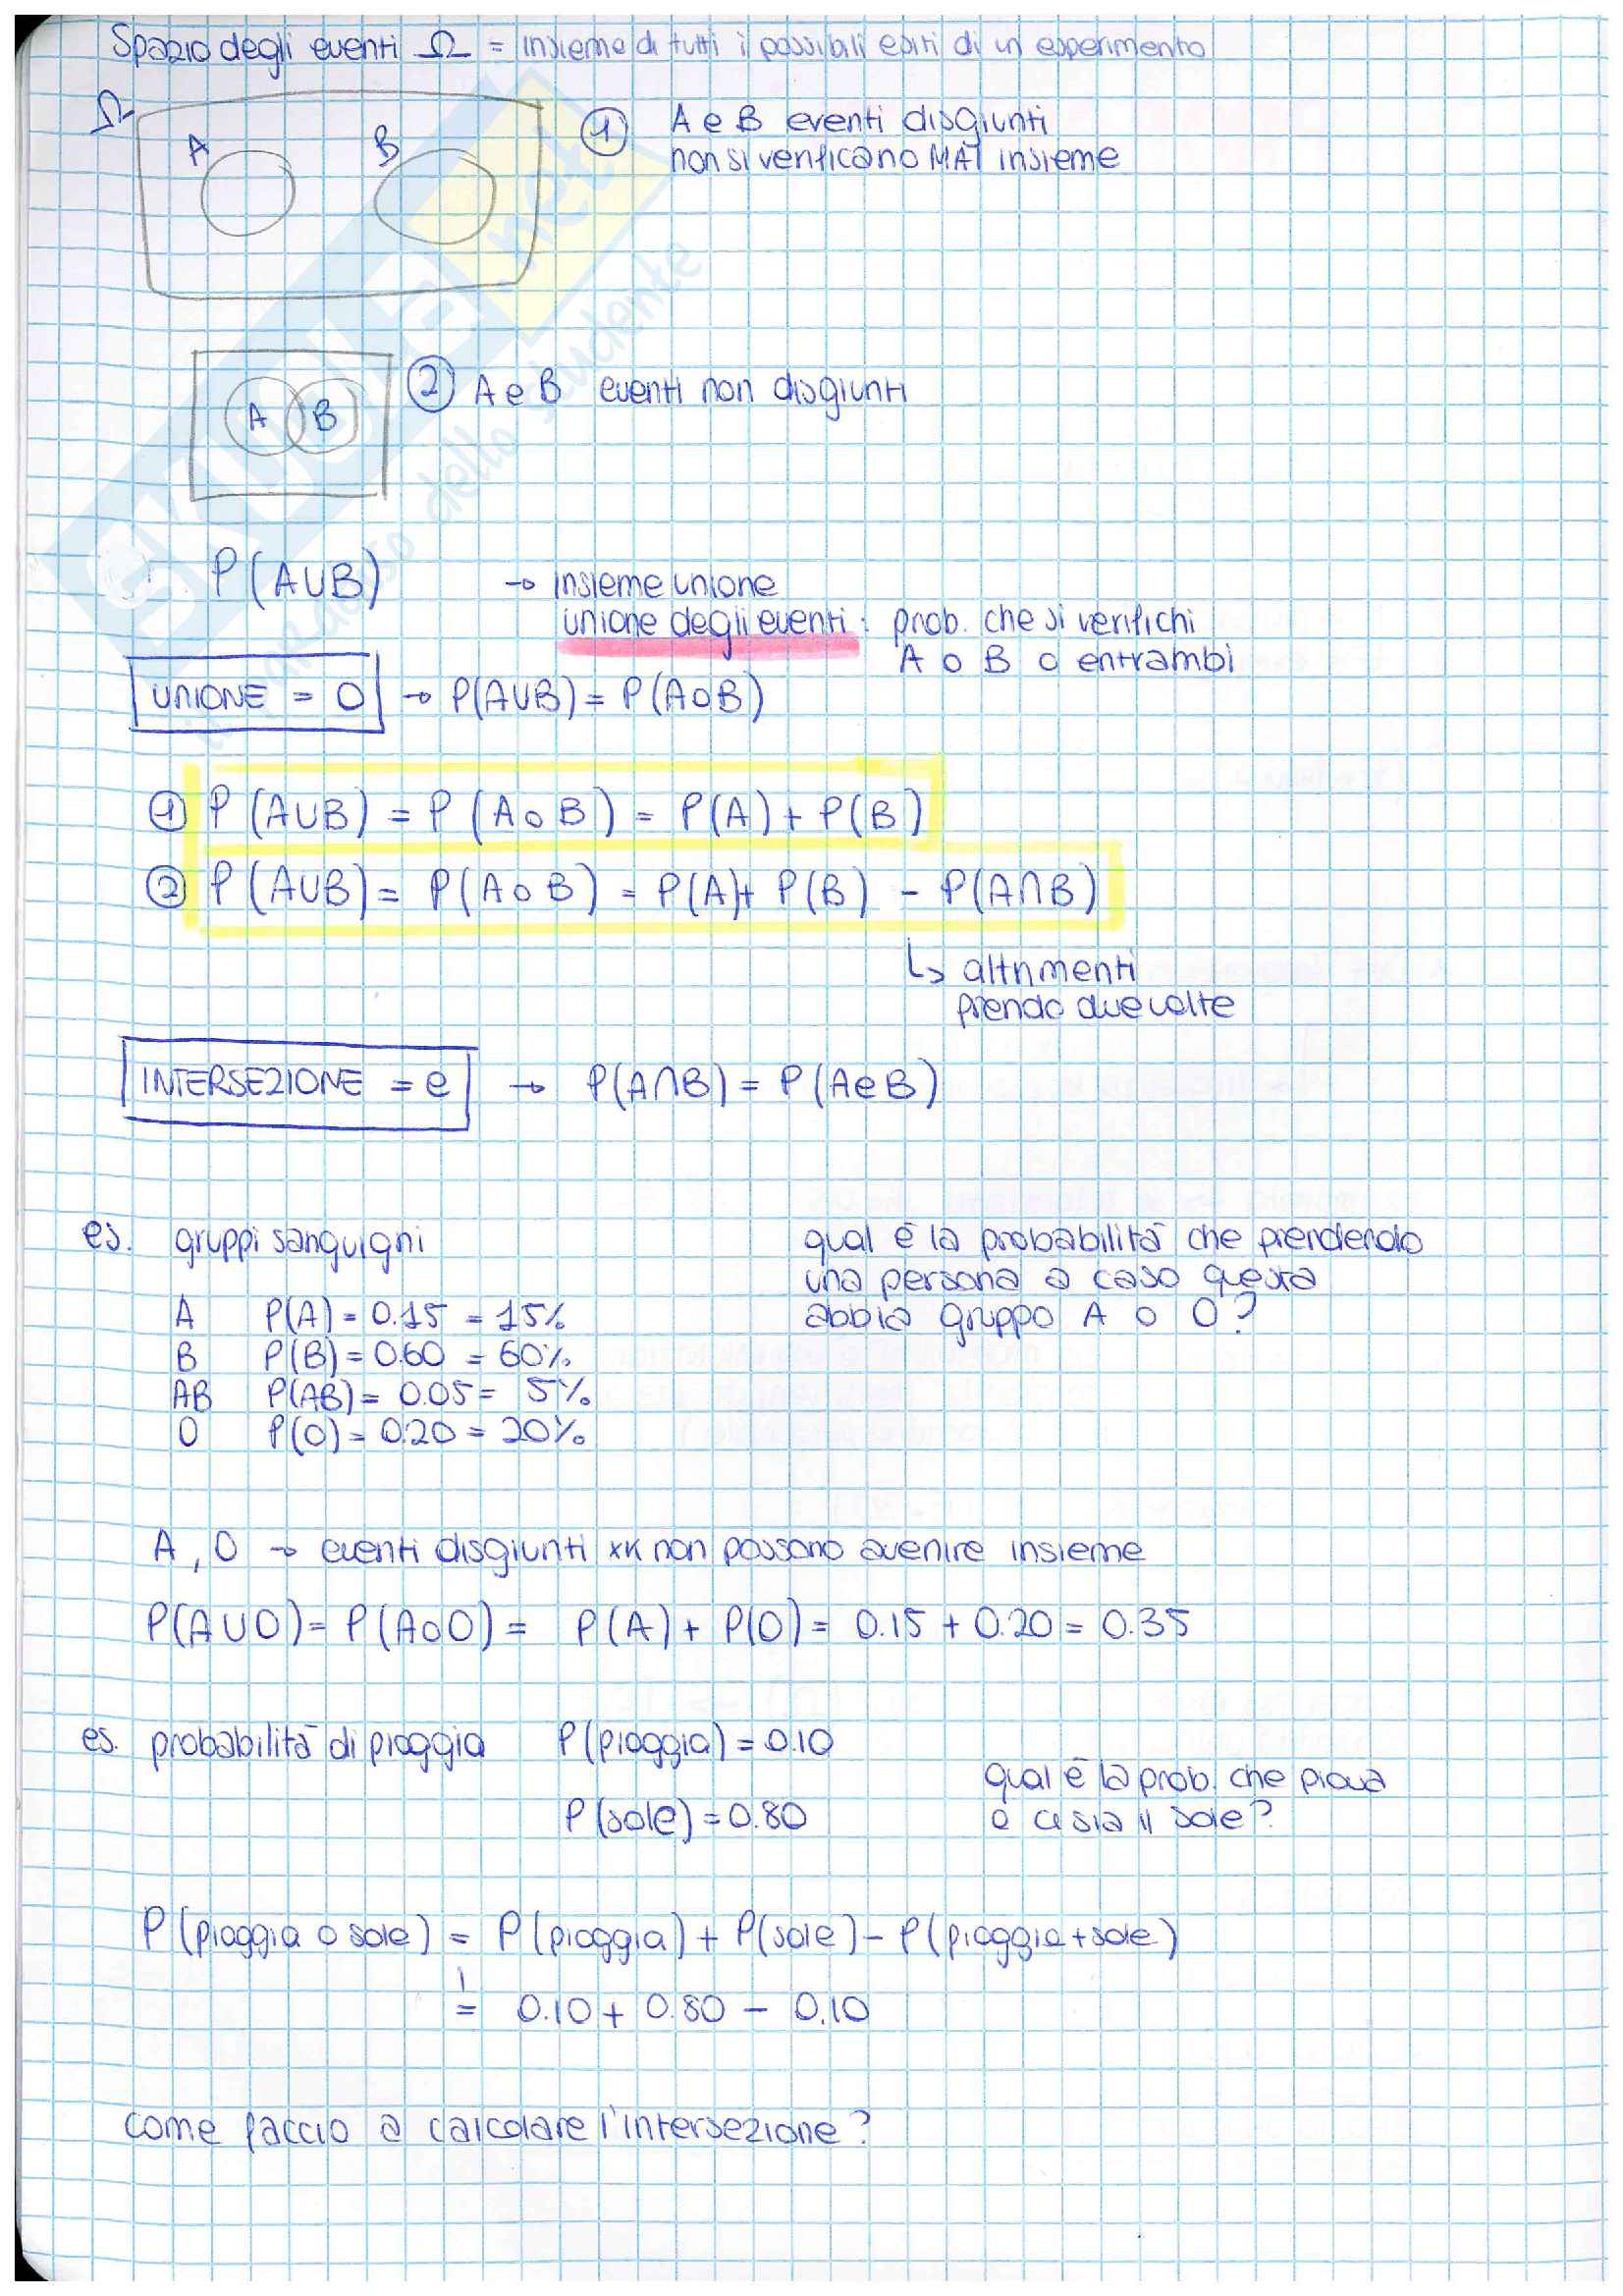 Spazio degli eventi Ω = insieme di tutti i possibili esiti di un esperimento
Ω
A
B
① A e B eventi disgiunti
non si verificano MAI insieme
A B
② A e B eventi non disgiunti
P(A∪B) → insieme unione
unione degli eventi: prob. che si verifichi
A o B o entrambi
UNIONE = O → P(A∪B) = P(A o B)
① P(A∪B) = P(A o B) = P(A) + P(B)
② P(A∪B) = P(A o B) = P(A) + P(B) - P(A∩B)
↳ altrimenti
prendo due volte
INTERSEZIONE = e → P(A∩B) = P(A e B)
es. gruppi sanguigni
qual è la probabilità che prendendo
una persona a caso questa
abbia gruppo A o O?
A P(A) = 0.15 = 15%
B P(B) = 0.60 = 60%
AB P(AB) = 0.05 = 5%
O P(O) = 0.20 = 20%
A, O → eventi disgiunti xk non possono avenire insieme
P(A∪O) = P(A o O) = P(A) + P(O) = 0.15 + 0.20 = 0.35
es. probabilità di pioggia P(pioggia) = 0.10
P(sole) = 0.80
qual è la prob. che piova
o ci sia il sole?
P(pioggia o sole) = P(pioggia) + P(sole) - P(pioggia+sole)
= 0.10 + 0.80 - 0.10
come faccio a calcolare l'intersezione?
skuola.net
dello studente